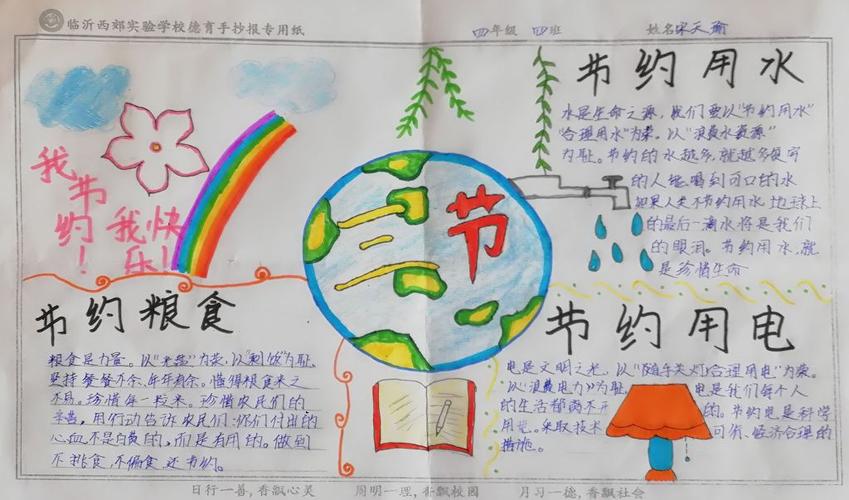 临沂西郊实验学校德育手抄报专用纸
四年级 四班 姓名宋天瑜
我节约！
我快乐！
三节
节约用水
水是生命之源，我们要以“节约用水”
“合理用水”为荣。以“浪费水资源”
为耻。节约的水越多，就越多
的人能喝到可口的水
如果人类不节约用水 地球上
的最后一滴水将是我们
的眼泪。节约用水，就
是珍惜生命
节约粮食
粮食是力量。以“光盘”为荣，以“剩饭”为耻，
坚持餐餐不余，年年有余。懂得粮食来之
不易。珍惜每一粒米。珍惜农民们的
辛苦，用行动告诉农民们：你们付出的
心血不是白费的，而是有用的。做到
不挑食，不偏食 还节约。
节约用电
电是文明之光，以“随手关灯合理用电”为荣。
以“浪费电力”为耻。电是我们每个人
的生活都离不开的。节约电是科学
用电。采取技术可行、经济合理的
措施。
日行一善，香飘心灵 周明一理，香飘校园 月习一德，香飘社会